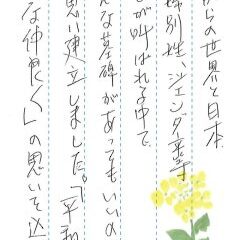 からの世界と日本
性別、性、ジェンダー平等
が叫ばれる中で
んな墓碑があってもいいの
思い建立しました。「平和
な仲良く」の思いを込